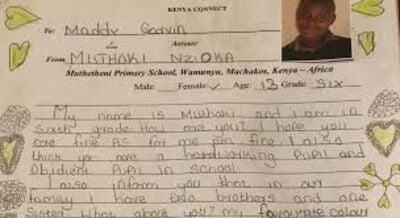 KENYA CONNECT
To: Maddy Godvin
From MUTHOKI NZIOKA
Muthetheni Primary School, Wamunyu, Machakos, Kenya – Africa
Male: Female: ✓ Age: 13 Grade: SIX
My name is Muthoki and I am in
sixth grade. How are you? I hope you
are fine As for me am fine. I also
think you are a hardworking Pupil and
Obidient Pupil in school.
I also inform you that in our
family I have two brothers and one
Sister. What about you? my favourate colour